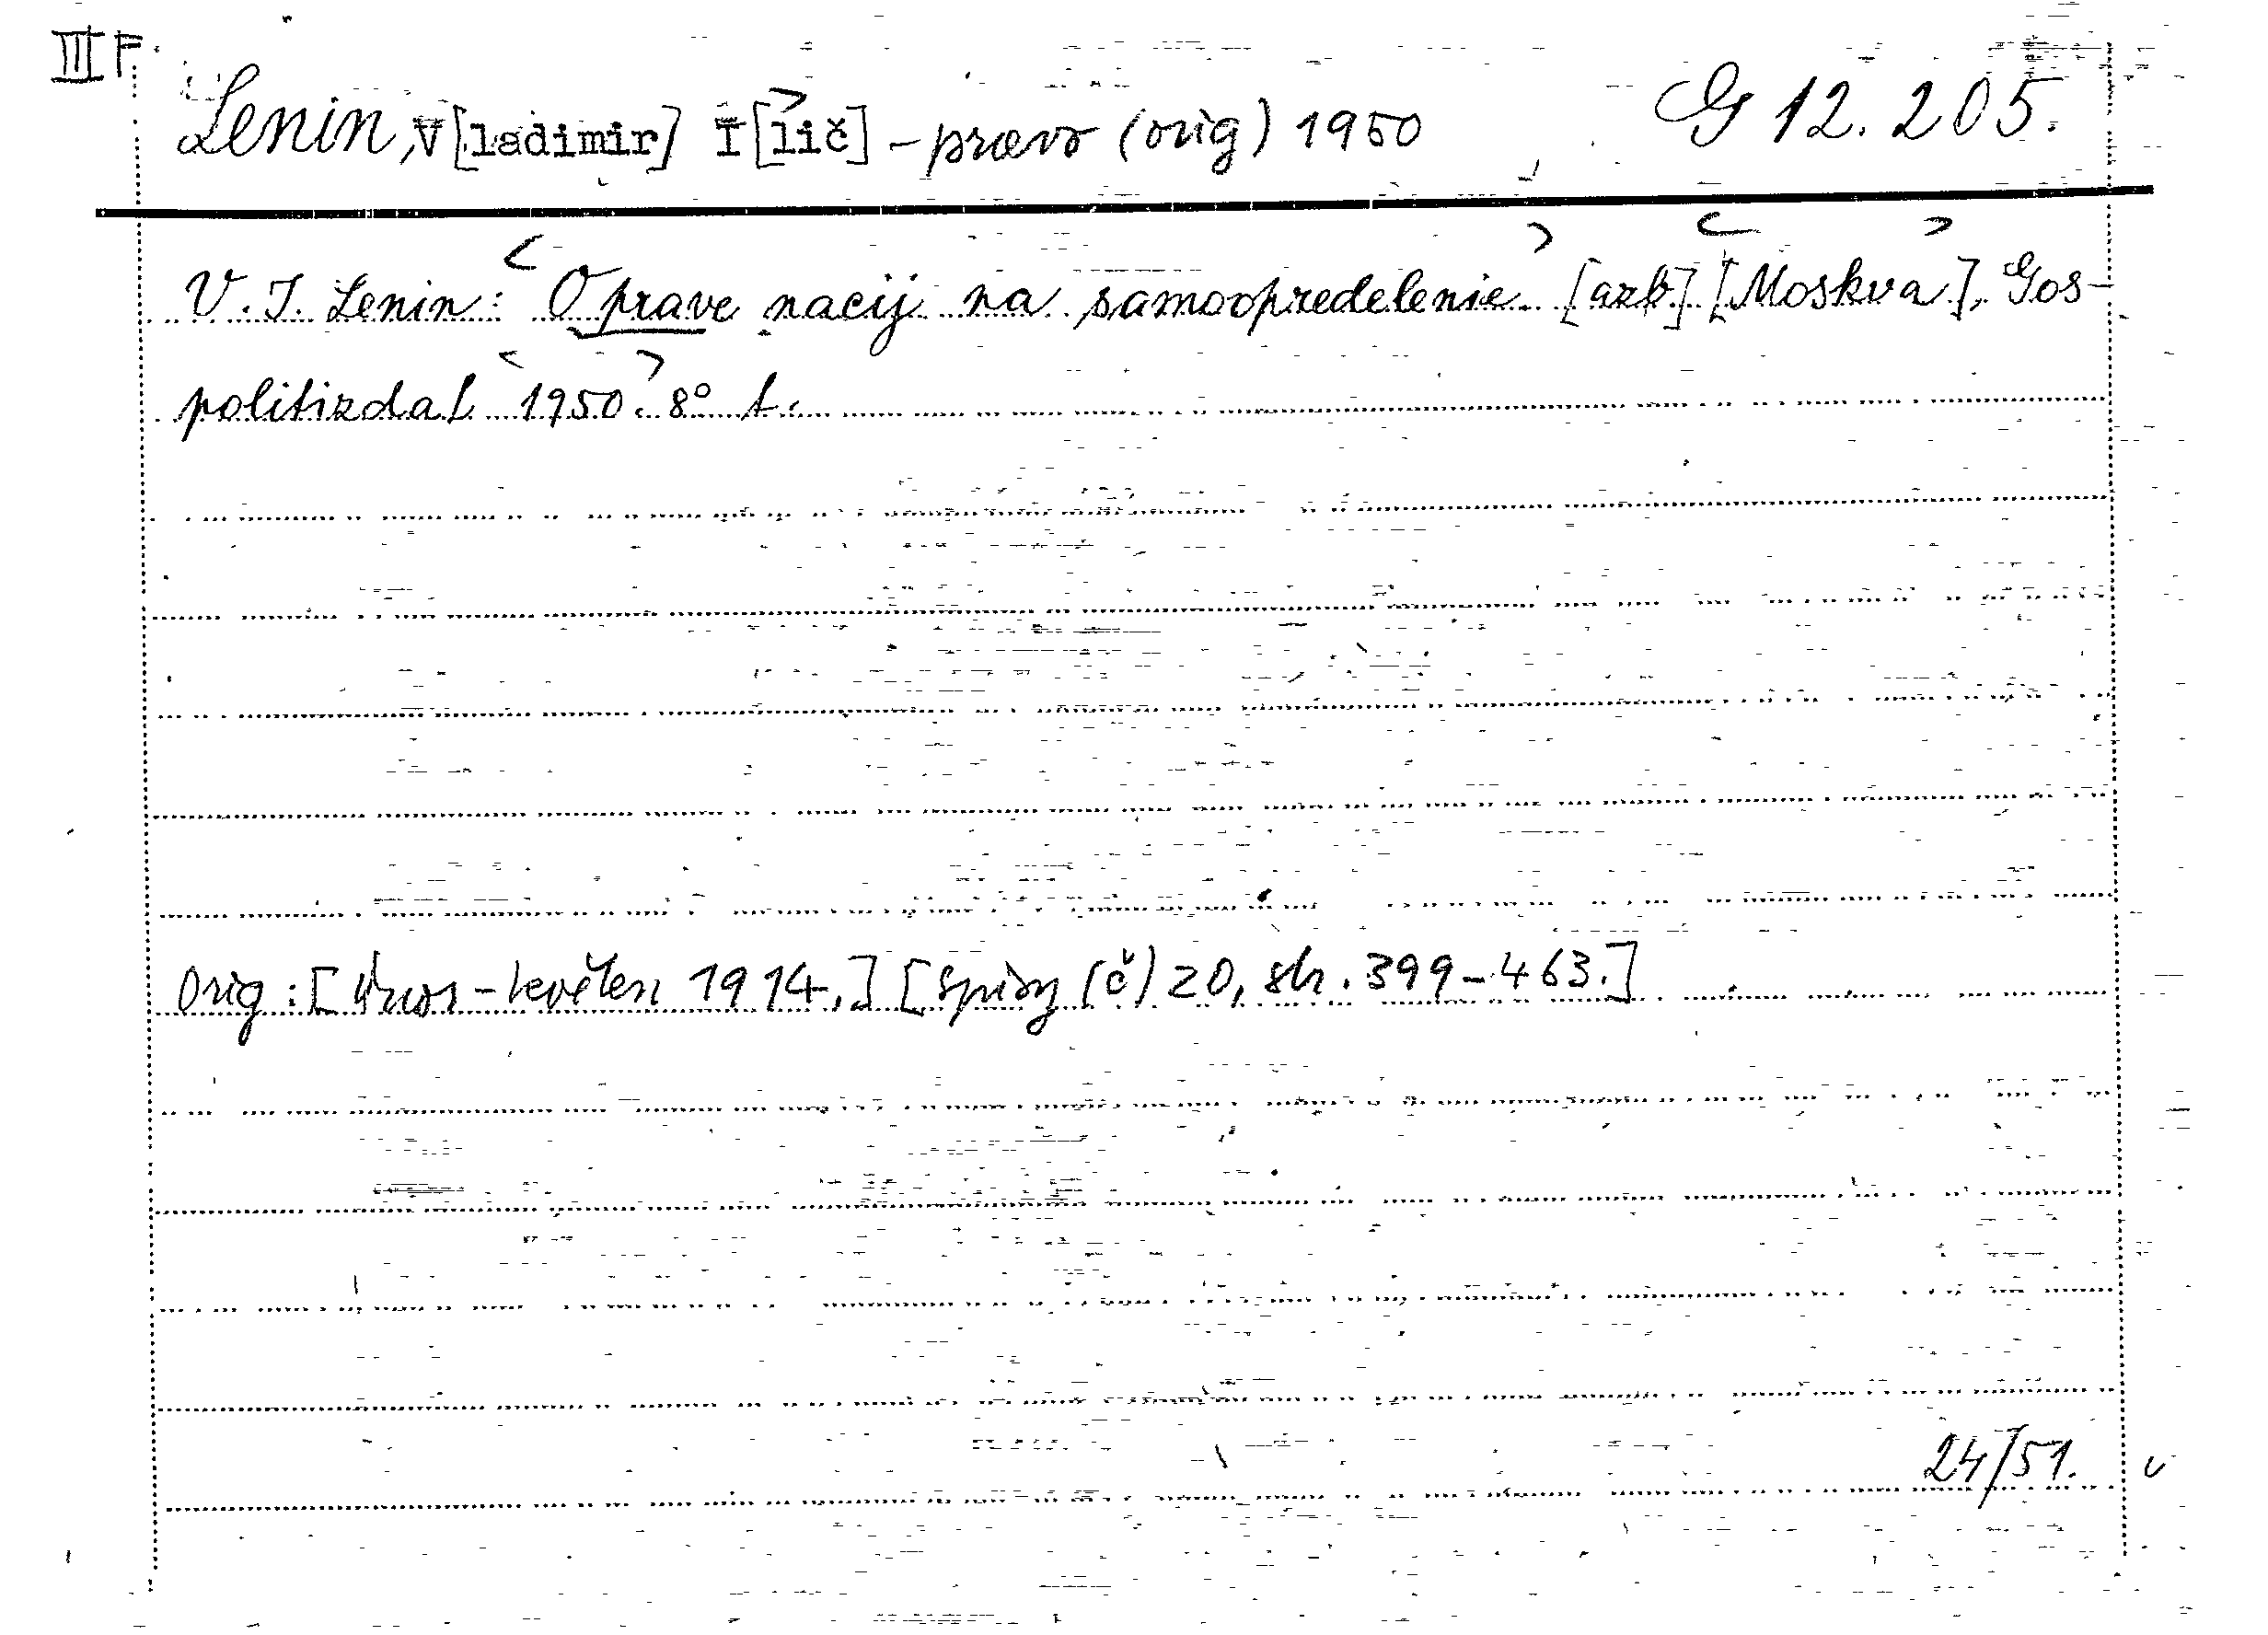 III F.
Lenin, V[ladimir] I[lič] - pravo (orig) 1950 G 12.205.
V. I. Lenin: <O prave nacij na samoopredelenie.> [azb] <[Moskva]>, Gos-
politizdat <1950.> 8° t.
Orig: [únor-květen 1914.] [Spisy (č) 20, str. 399-463.]
24/51. v